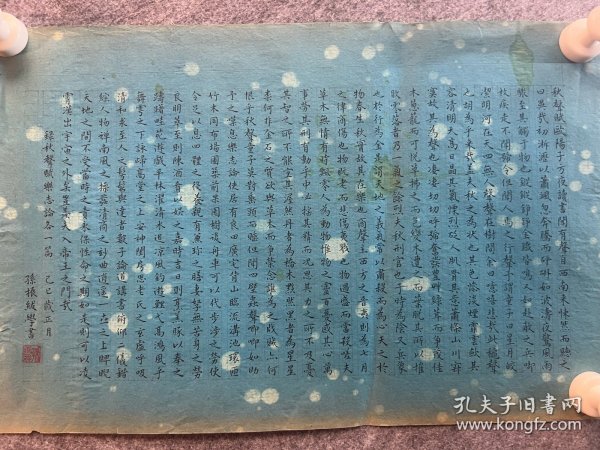 秋聲賦歐陽子方夜讀書聞有聲自西南来悚然而聽之
曰異哉初淅瀝以蕭颯忽奔騰而砰湃如波濤夜驚風雨
驟至其觸于物也鏦鏦錚錚金鐵皆鳴又如赴敵之兵啣
枚疾走不聞號令但聞人馬之行聲予謂童子曰星月皎
潔明河在天四無人聲聲在樹間余曰噫嘻悲哉此秋聲
也胡為乎来哉
容清明天高日晶其氣慄冽砭人肌骨其意蕭條山川寂
寥故其為聲也凄凄切切呼號奮發豐草綠縟而爭茂佳
木葱蘢而可悦草拂之而色變木遭之而葉脫其所以摧
敗零落者乃一氣之餘烈夫秋刑官也于時為陰又兵象
也於行為金是謂天地之義氣常以肅殺而為心天之於
物春生秋實故其在樂也商聲主西方之音夷則為七月
之律商傷也物既老而悲傷夷戮也物過盛而當殺嗟夫
草木無情有時飄零人為動物惟物之靈百憂感其心萬
事勞其形有動乎中必搖其精而况思其力之所不及憂
其智之所不能宜其渥然丹者為槁木黟然黑者為星星
奈何非金石之質欲與草木而爭榮念誰為之戕賊亦何
恨乎秋聲童子莫對垂頭而睡但聞四壁蟲聲唧唧如助
予之歎息樂志論使居有良田廣宅背山臨流溝池環匝
竹木周布場圃築前果園樹後舟車可以代步涉之勞使
令足以息四體之役養親有兼珍之膳妻孥無苦身之勞
良朋萃至則陳酒肴以娛之嘉時吉日則烹羔豚以奉之
躊躇畦苑遊戲平林濯清水追涼風釣遊鯉弋高鴻風乎
舞雩之下詠歸高堂之上安神閨房思老氏之玄虛呼吸
清和求至人之髣髴與達者數子論道講書俯仰二儀錯
綜人物彈南風之操發清商之妙曲逍遙一世之上睥睨
天地之間不受當時之責永保性命之期如是則可以凌
霄漢出宇宙之外矣豈羨夫入帝王之門哉
錄秋聲賦樂志論各一篇 己巳歲正月
孫振
孔夫子旧书网
www.kongfz.com